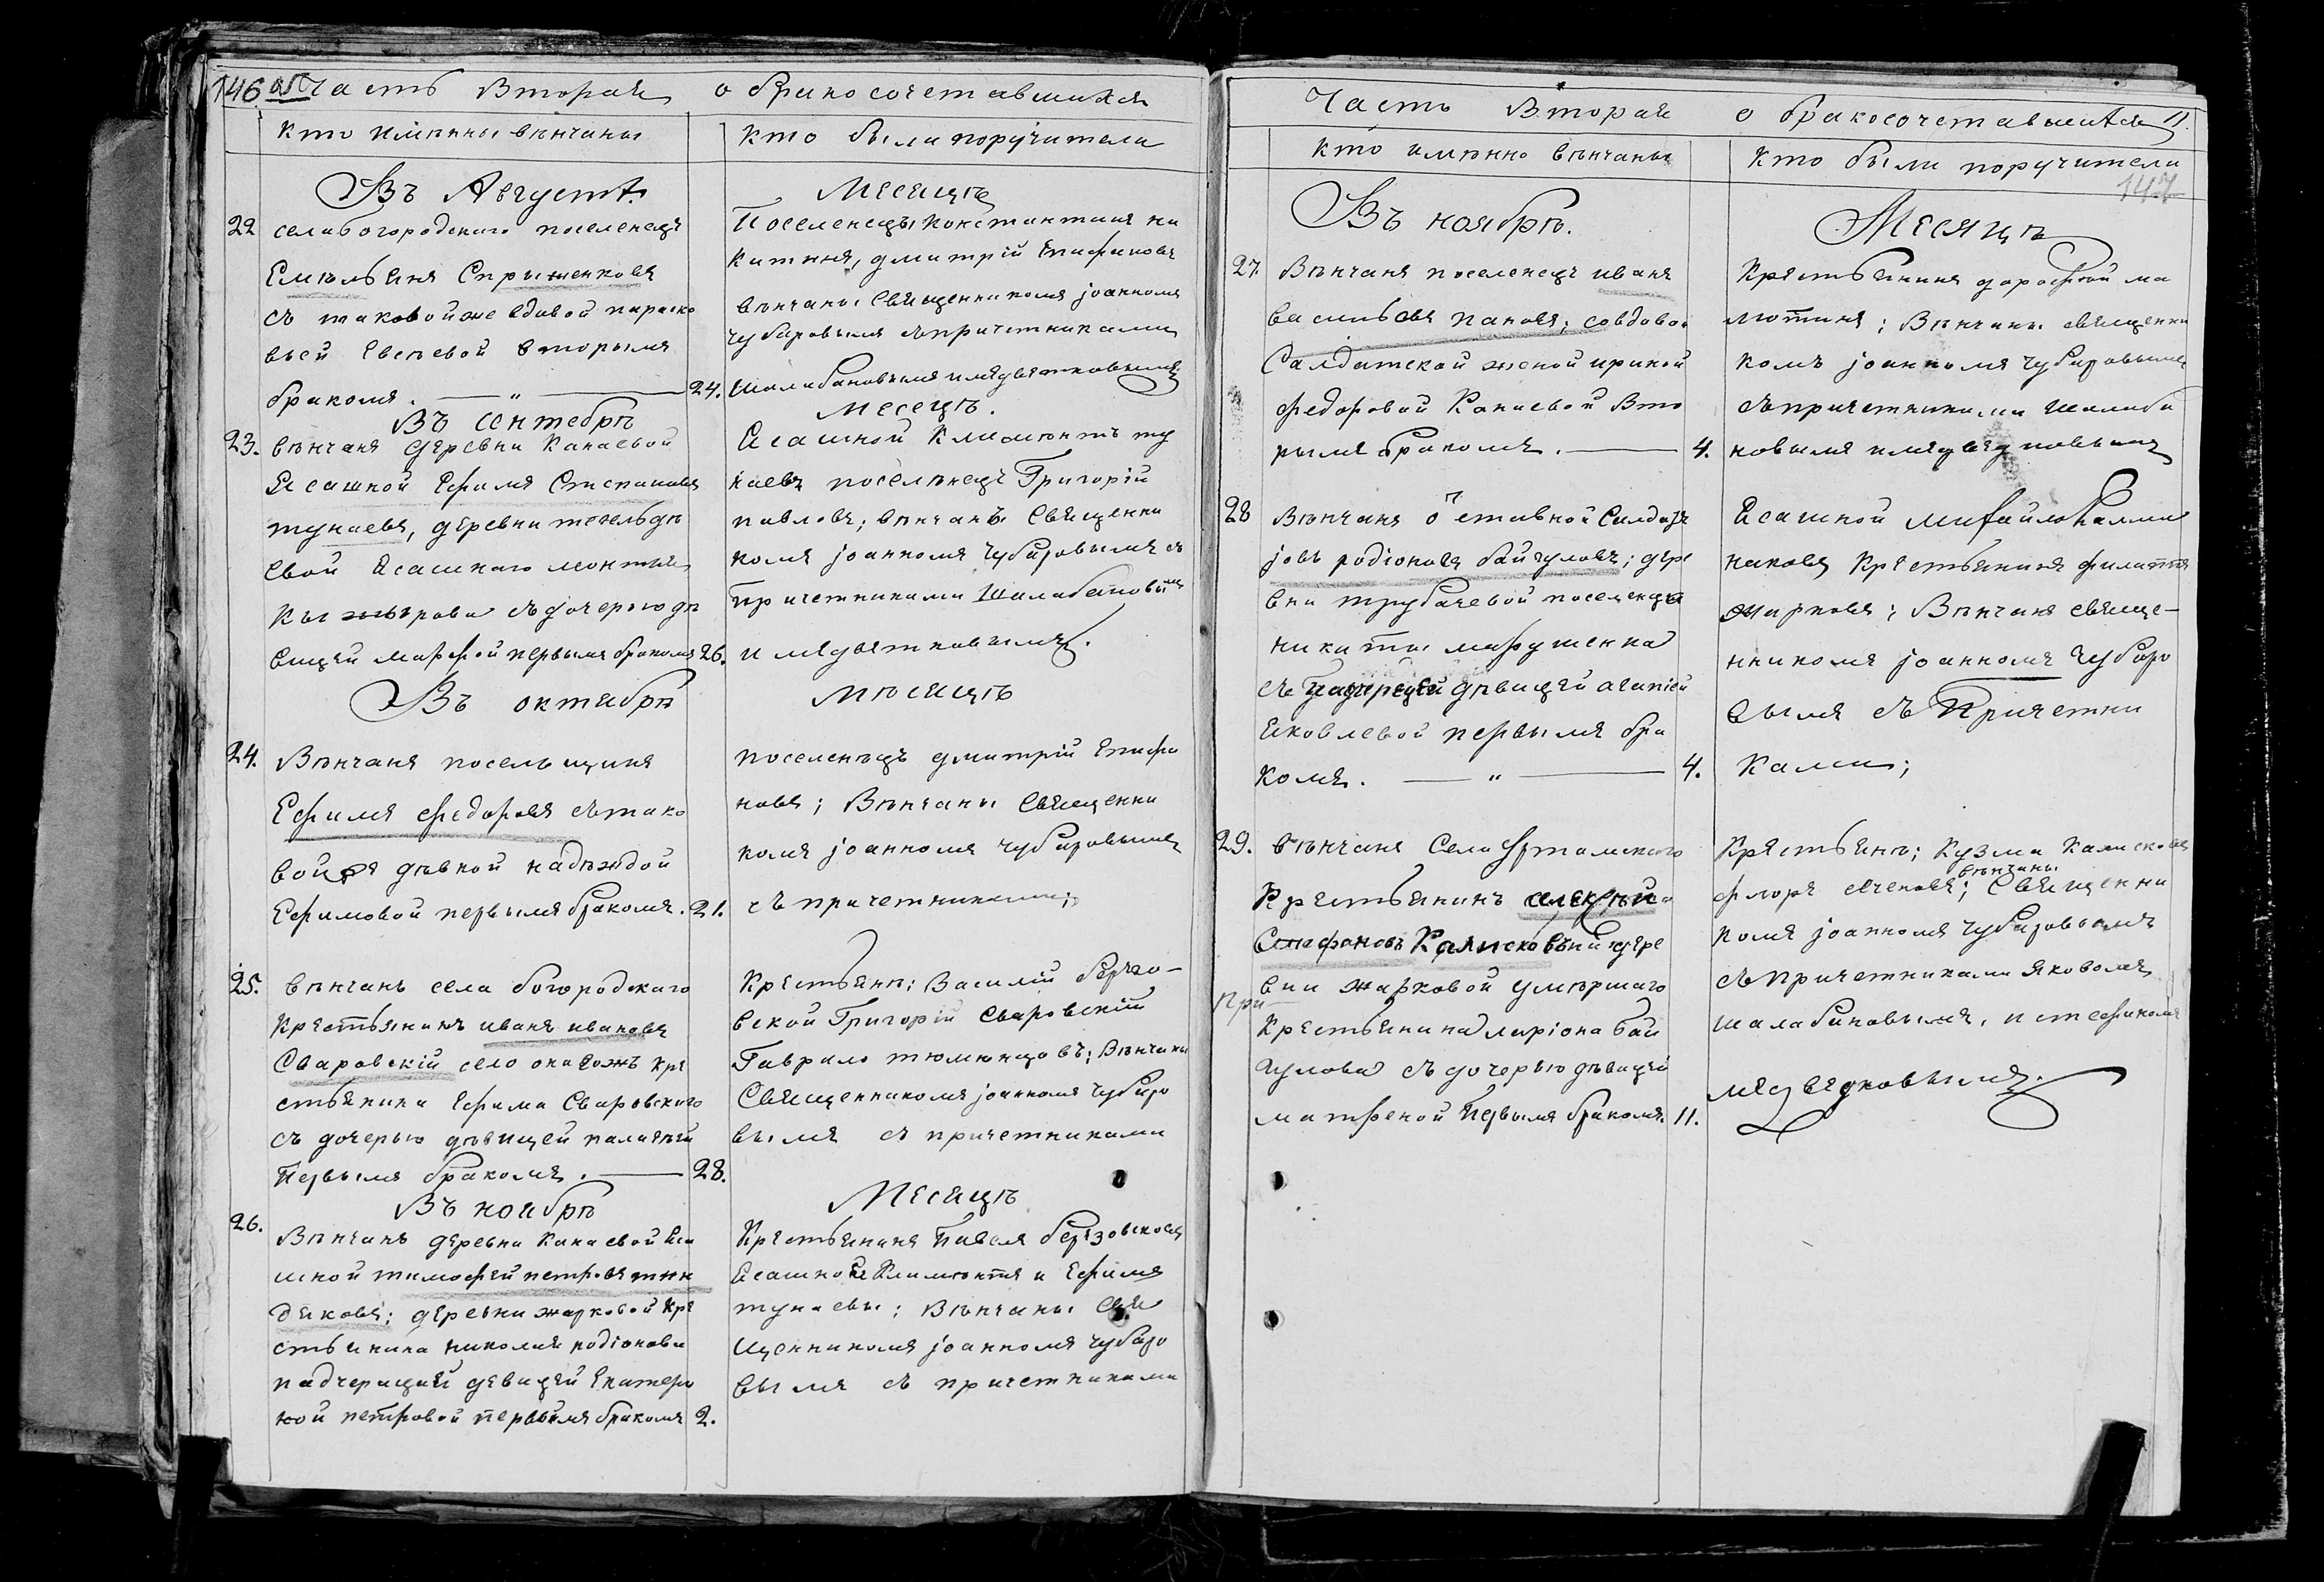 146 об
Часть Вторая о бракосочетавшихся
Кто имянны венчаны
Кто были поручители
Въ Августѣ
Месяцѣ
22 села богородскаго поселенецъ
Емѣльянъ Спрыженковъ
съ таковойже вдовой параско
вьей Евсѣевой вторымъ
бракомъ. — „ — 24.
Поселенецы Константинъ Ни
китинъ, дмитрій Епифановъ
вѣнчаны Священникомъ јоанномъ
чубаровымъ съпричетниками
шалабановымъ имѣдвѣтковымъ
Въ сентебрѣ
Месецѣ.
23. вѣнчанъ деревни Канаевой
Ясашной Ефимъ Степановъ
тунаевъ, деревни
евой Ясашнаго
съдочерью дѣ
вицей марфой первымъ бракомъ 26.
Ясашной Климѣнтъ ту
наевъ поселѣнецъ Григорій
павловъ; вѣнчанъ Священни
комъ јоанномъ Чубаровымъ съ
причетниками Шалабановымъ
и медвѣтковымъ.
Въ октябрѣ
мѣсяцѣ
24. Вѣнчанъ посельщикъ
Ефимъ федоровъ сътако
войже дѣвкой надѣждой
Ефимовой первымъ бракомъ. 21.
поселенѣцъ дмитрій Епифа
новъ; Вѣнчаны Священни
комъ јоанномъ чубаровымъ
съ причетниками;
25. вѣнчанъ села богородскаго
Крестьянинъ иванъ ивановъ
Сваровскій село онагожъ кре
стьянина Ефима Сваровскаго
съ дочерью дѣвицей палагѣй
Первымъ бракомъ. — 28.
Крестьянѣ; Василій
вской Григорій Сваровскій
Гаврило тюмѣнцовъ; Вѣнчаны
Священникомъ јоанномъ Чубаро
вымъ съ причетниками
Въ ноябрѣ
Месяцѣ
26. Вѣнчанъ деревни Канаевой Яса
шной тимофей петровъ тын
дыковъ; деревни жарковой кре
стьянина николая родіонова
падчерицѣй девицей Екатери
ной петровой первымъ бракомъ 2.
Крестьянинъ Павелъ березовсковъ
Ясашной Климѣнтъ и Ефимъ
тунаевы; Вѣнчаны Свя
щенникомъ јоанномъ Чубаро
вымъ съ причетниками
Часть Вторая о бракосочетавшихся 11.
Кто имянно вѣнчаны
Кто были поручители
147
Въ ноябрѣ.
Месяцѣ
27. Вѣнчанъ поселенецъ иванъ
васильевъ пановъ; совдовой
Салдатской женой ириной
федоровой Канаевой Вто
рымъ бракомъ. — 4.
Крестьянинъ дорофѣй ма
лютинъ; Вѣнчаны священни
комъ јоанномъ Чубаровымъ
съпричетниками Шалаба
новымъ имѣдвѣдковымъ
28 Вѣнчанъ отставной Салдатъ
јовъ родіоновъ байгуловъ; дере
вни трубачевой поселенца
никиты марушенка
съ падчерецей дѣвицей агапіей
Яковлевой первымъ бра
комъ. — „ — 4.
Ясашной михайло
наковъ Крестьянинъ филиппъ
жарковъ; Вѣнчанъ свяще-
нникомъ јоанномъ Чубаро
вымъ съ Причетни
ками;
29. вѣнчанъ села Уртамскаго
Крестьянинъ алексѣй
Стефановъ Калмсковъ дере
вни жарковой умѣршаго
При
Крестьянина ларіона бай
гулова съ дочерью дѣвицей
матреной Первымъ бракомъ. 11.
Крестьянѣ; Кузма
вѣнчаны
флоръ; Священни
комъ јоанномъ Чубаровымъ
съпричетниками яковомъ
шалабановымъ, и стефаномъ
медведковымъ.